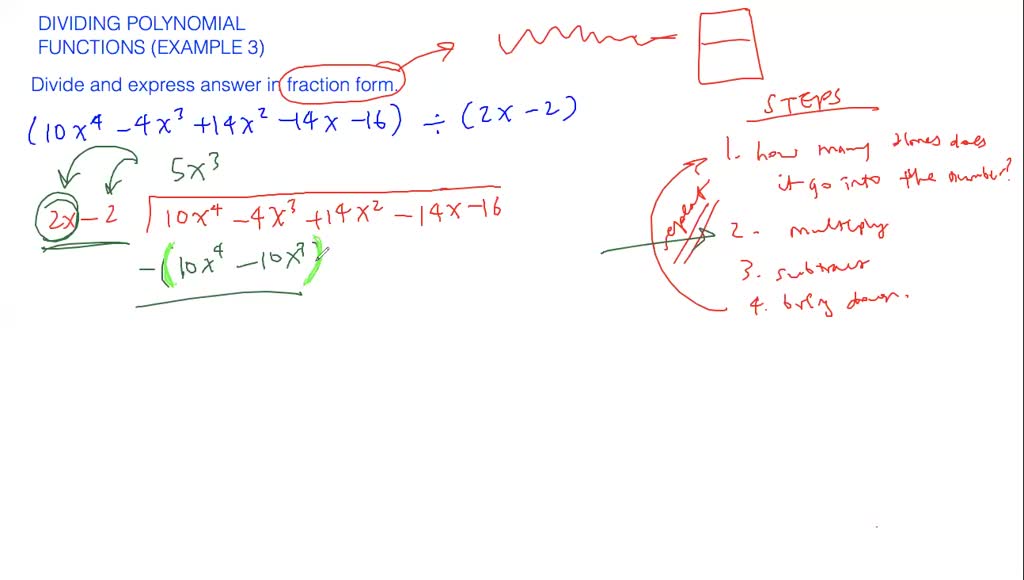 DIVIDING POLYNOMIAL
FUNCTIONS (EXAMPLE 3)
Divide and express answer in fraction form.
(10x⁴ -4x³ +14x² -14x -16) ÷ (2x -2)
5x³
2x -2 10x⁴ -4x³ +14x² -14x -16
-(10x⁴ -10x³)
STEPS
1. how many times does
it go into the number?
2. multiply
3. subtract
4. bring down.
repeat